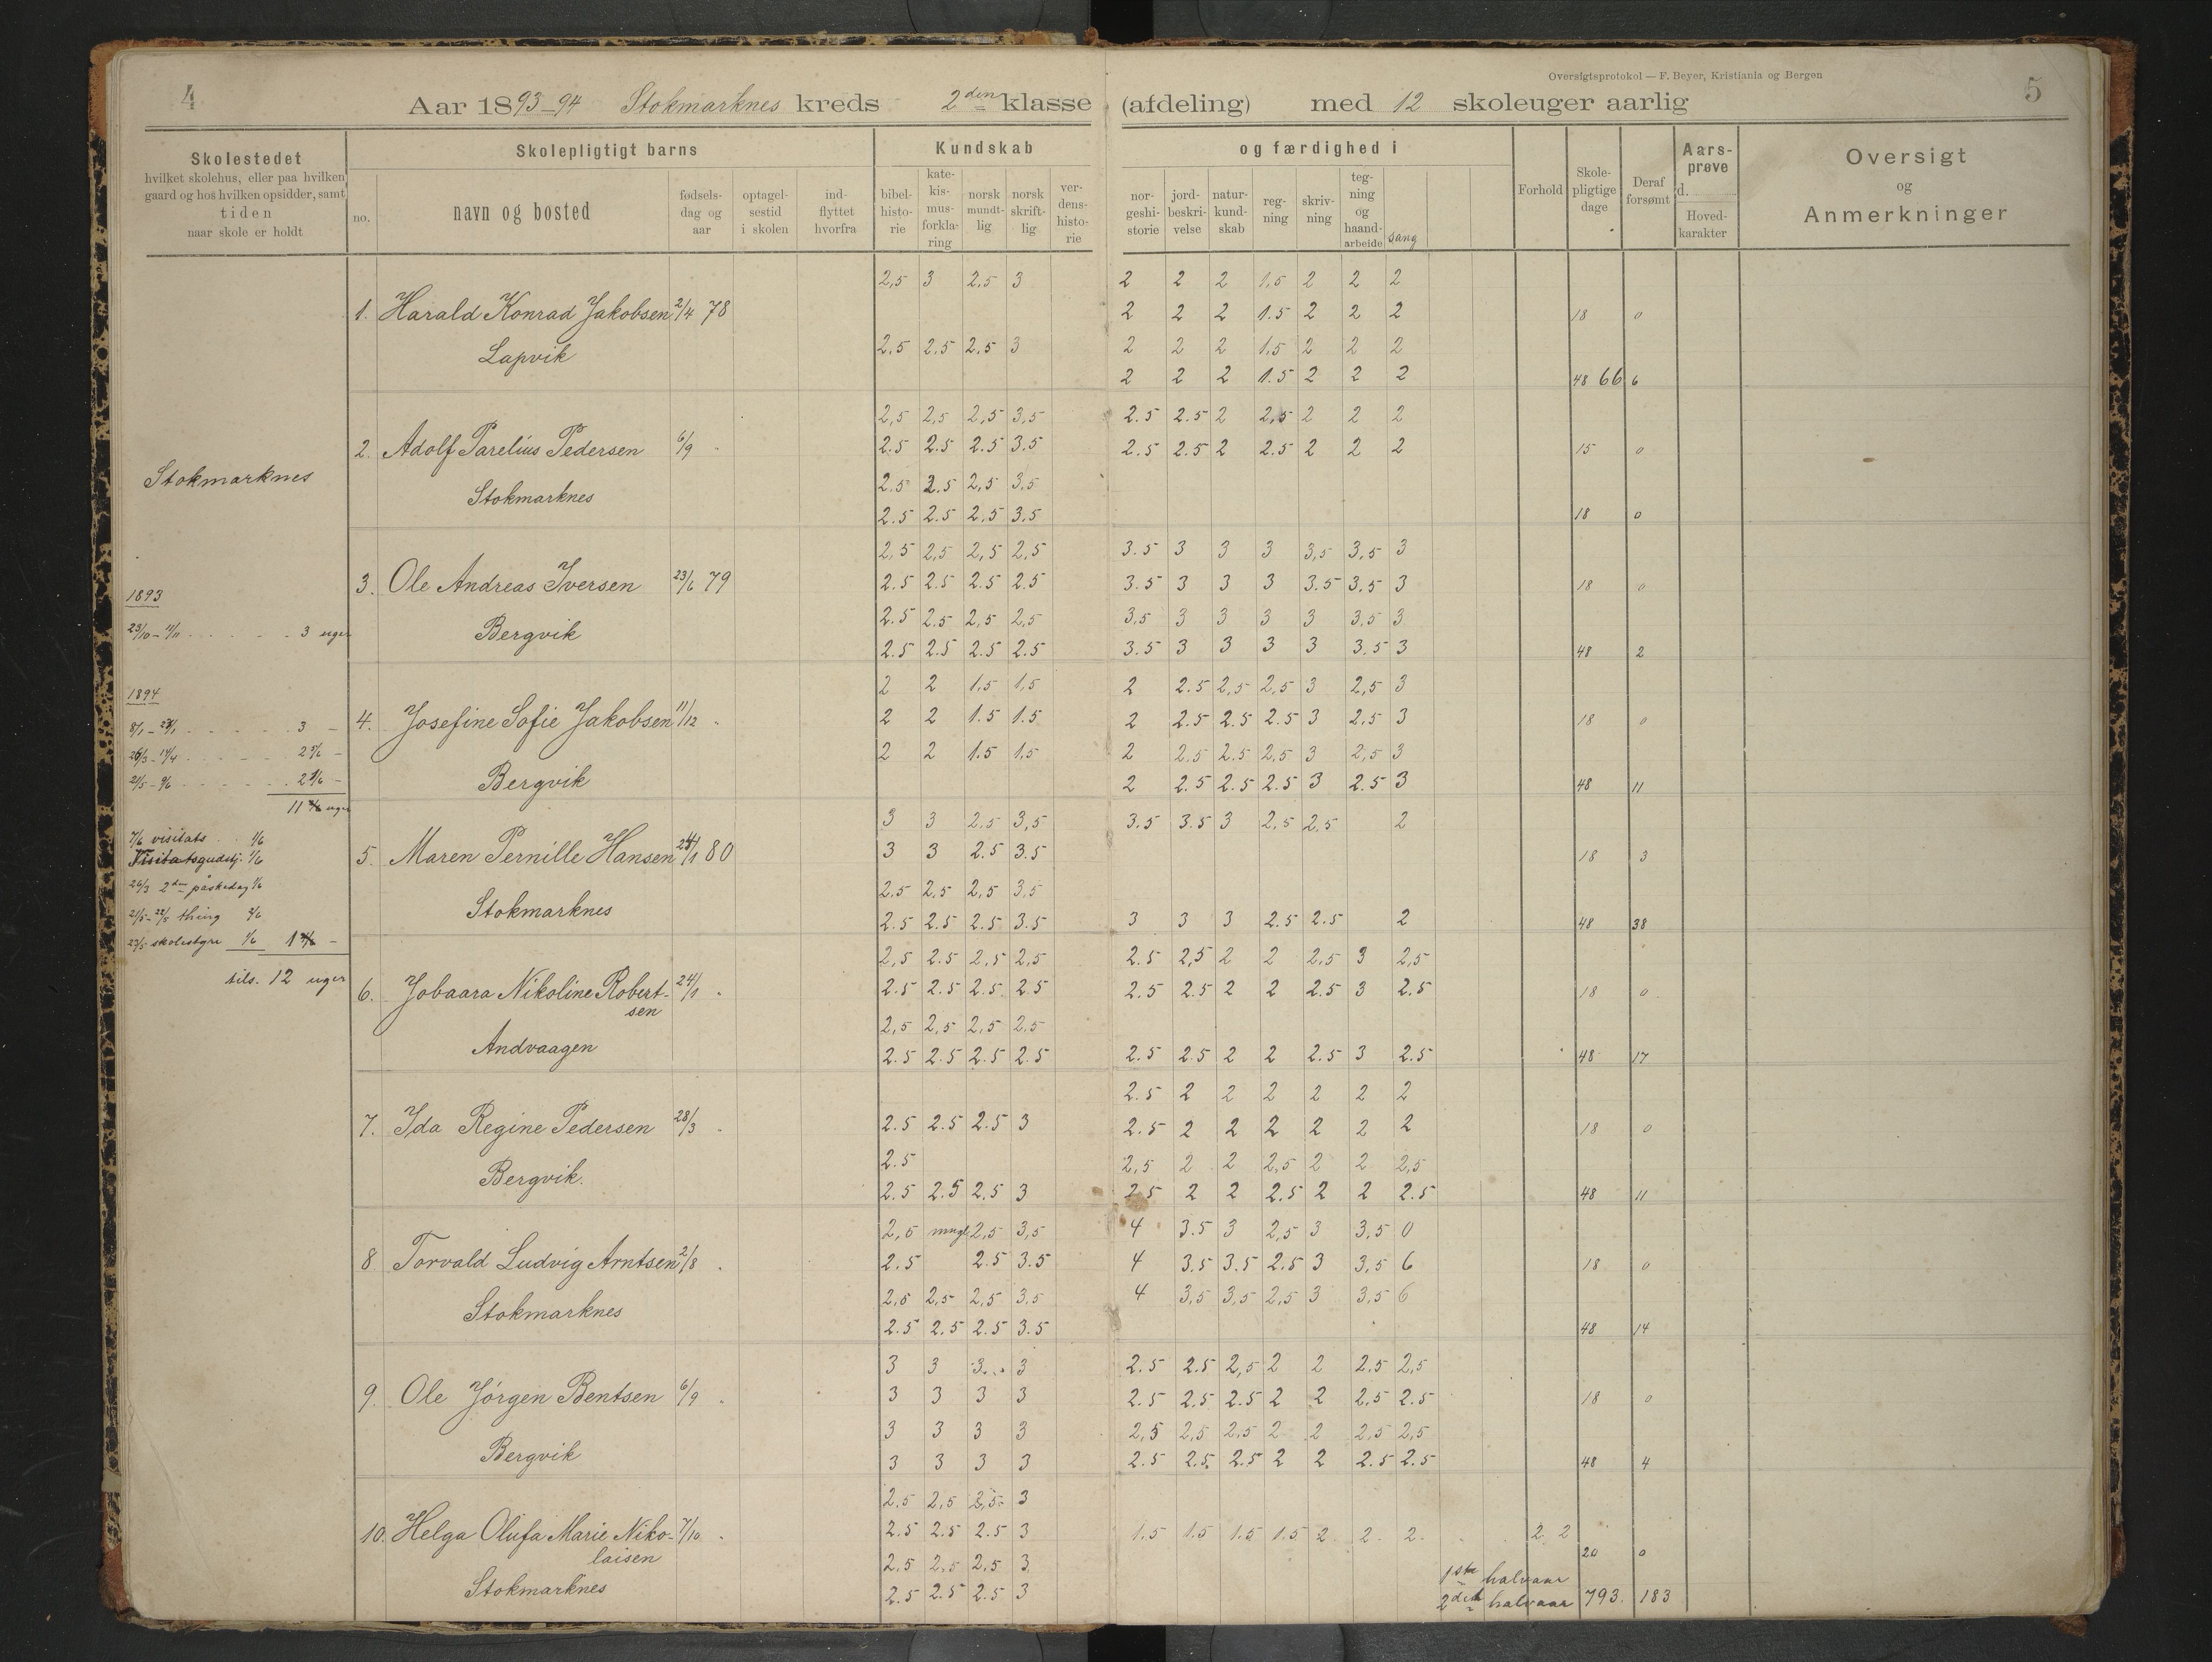 Oversigtsprotokol — F. Beyer, Kristiania og Bergen
4 Aar 1893–94 Stokmarknes kreds 2den klasse (afdeling) med 12 skoleuger aarlig 5
Skolestedet
hvilket skolehus, eller paa hvilken
gaard og hos hvilken opsidder, samt
tiden
naar skole er holdt
Skolepligtigt barns
no. navn og bosted fødsels-dag og aar optagel-sestid i skolen ind-flyttet hvorfra
Kundskab og færdighed i
bibel-histo-rie kate-kis-mus-forkla-ring norsk mundt-lig norsk skrift-lig ver-dens-histo-rie
nor-geshi-storie jord-beskri-velse natur-kund-skab reg-ning skriv-ning teg-ning og haand-arbeide sang
Forhold Skole-pligtige dage Deraf forsømt Aars-prøve d. Hoved-karakter
Oversigt
og
Anmerkninger
Stokmarknes
1893
23/10 – 11/11 3 uger
1894
3
26/3 – 14/4 2 5/6 –
21/5 – 9/6
uger
7/6 visitats 1/6
Visitatsgudstj. 1/6
26/3 2den påskedag 1/6
21/5 – 22/5 thing 2/6
23/5 skolestyre 1/6
tils. 12 uger
2,5 3 2,5 3 2 2 2 1,5 2 2 2
1. Harald Konrad Jakobsen 2/4 78 2 2 2 1.5 2 2 2 18 0
Lapvik 2,5 2,5 2,5 3 2 2 2 1,5 2 2 2
2 2 2 1.5 2 2 2 48 66 6
2,5 2,5 2,5 3,5 2.5 2.5 2 2,5 2 2 2
2. Adolf Parelius Pedersen 6/9 " 2.5 2.5 2.5 3.5 2.5 2.5 2 2.5 2 2 2 15 0
Stokmarknes 2.5 2.5 2,5 3,5
2.5 2.5 2,5 3,5 18 0
2,5 2,5 2,5 2,5 3.5 3 3 3 3,5 3,5 3
3. Ole Andreas Iversen 23/6 79 2.5 2.5 2.5 2.5 3.5 3 3 3 3.5 3.5 3 18 0
Bergvik 2.5 2.5 2,5 2,5 3,5 3 3 3 3 3,5 3
2.5 2.5 2.5 2.5 3.5 3 3 3 3 3.5 3 48 2
2 2 1.5 1,5 2 2.5 2,5 2,5 3 2,5 3
4. Josefine Sofie Jakobsen 11/12 " 2 2 1.5 1.5 2 2.5 2.5 2.5 3 2,5 3 18 0
2 2 1.5 1,5 2 2.5 2.5 2,5 3 2,5 3
Bergvik 2 2.5 2.5 2.5 3 2.5 3 48 11
3 3 2,5 3,5 3.5 3.5 3 2,5 2,5 2
5. Maren Pernille Hansen 24/1 80 3 3 2.5 3.5 18 3
2,5 2,5 2,5 3,5
Stokmarknes 2.5 2.5 2.5 3.5 3 3 3 2.5 2.5 2 48 38
2,5 2.5 2,5 2,5 2.5 2,5 2 2 2,5 3 2,5
6. Jobaara Nikoline Robert- 24/1 " 2.5 2.5 2.5 2.5 2.5 2.5 2 2 2.5 3 2.5 18 0
sen
2,5 2,5 2,5 2,5
Andvaagen 2.5 2.5 2.5 2.5 2.5 2.5 2 2 2.5 3 2.5 48 17
2.5 2 2 2 2 2 2
7. Ida Regine Pedersen 28/3 " 2.5 2.5 2.5 3 2.5 2 2 2 2 2 2 18 0
2.5 2,5 2 2 2,5 2 2 2,5
Bergvik. 2.5 2.5 2,5 3 2.5 2 2 2.5 2 2 2.5 48 11
2,5 mngl 2,5 3,5 4 3.5 3 2,5 3 3,5 0
8 Torvald Ludvig Arntsen 2/8 " 2.5 2.5 3.5 4 3.5 3.5 2.5 3 3,5 6 18 0
2,5 2,5 2,5 3,5 4 3,5 3,5 2,5 3 3,5 6
Stokmarknes 2.5 2,5 2.5 3.5 48 14
3 3 3 3 2.5 2.5 2,5 2 2 2.5 2,5
9. Ole Jörgen Bentsen 6/9 " 3 3 3 3 2.5 2.5 2.5 2 2 2,5 2.5 18 0
3 3 3 3 2,5 2,5 2,5 2 2 2,5 2,5
Bergvik 3 3 3 3 2.5 2.5 2.5 2 2 2.5 2.5 48 4
2,5 2,5 2,5 3
10. Helga Olufa Marie Niko- 7/10 " 2.5 2.5 2.5 3 1.5 1.5 1.5 1.5 2 2 2 2 2
laisen 2,5 2,5 2,5 3 20 0
Stokmarknes 2.5 2.5 2.5 3
1ste halvaar
2det halvaar 793. 183